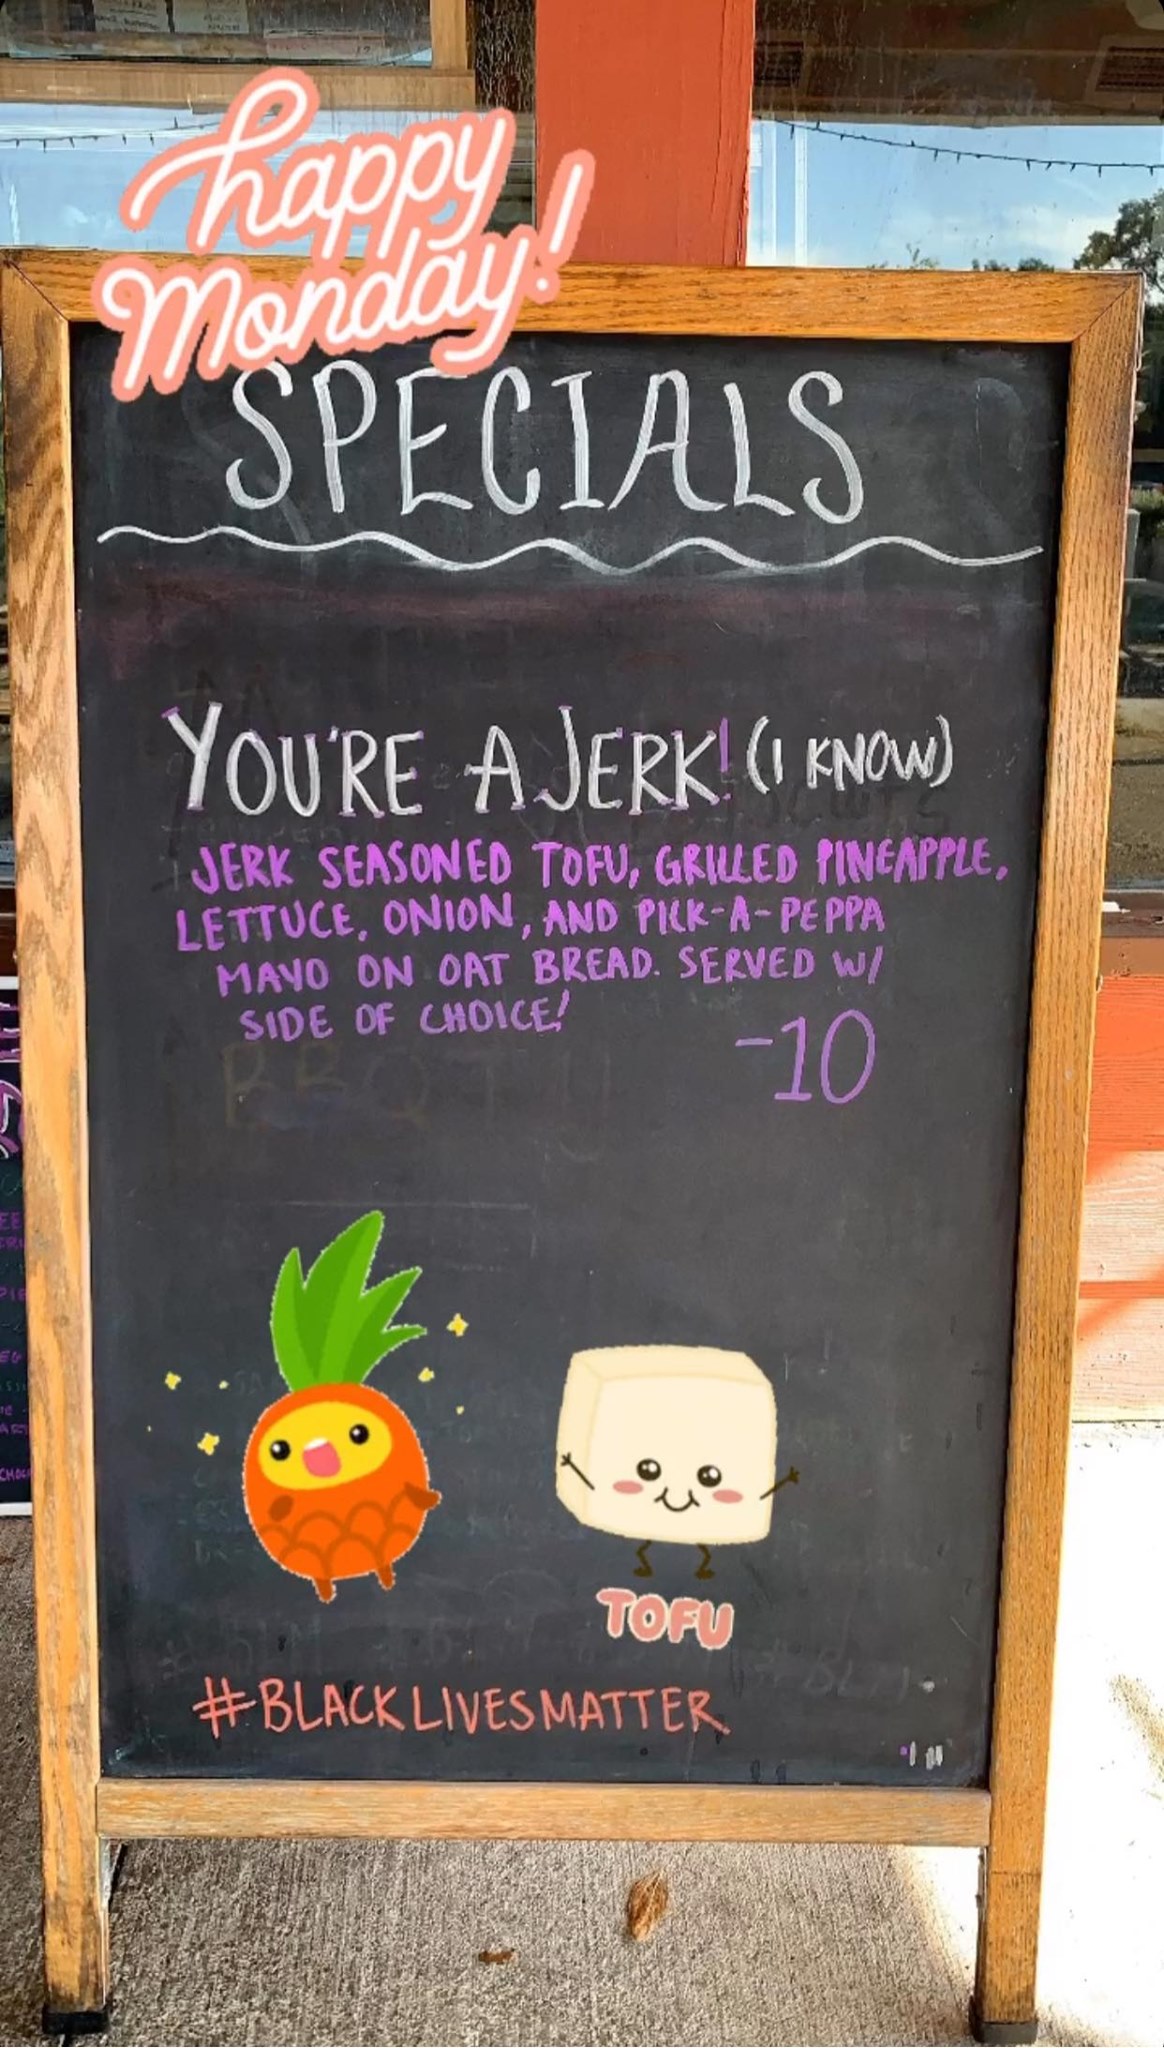 happy
Monday!
SPECIALS
YOU'RE A JERK! (I KNOW)
JERK SEASONED TOFU, GRILLED PINEAPPLE,
LETTUCE, ONION, AND PICK-A-PEPPA
MAYO ON OAT BREAD. SERVED W/
SIDE OF CHOICE!
-10
TOFU
#BLACKLIVESMATTER